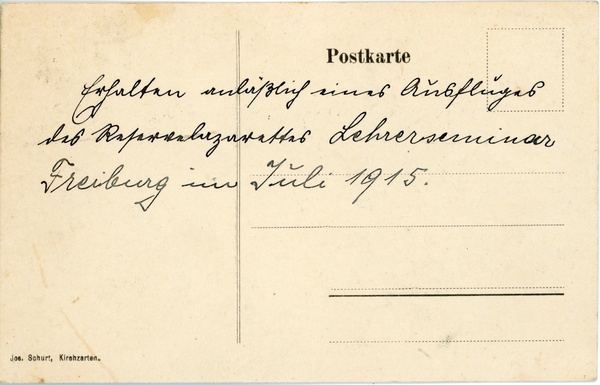 Postkarte
Erhalten anläßlich eines Ausfluges
des Reservelazarettes Lehrerseminar
Freiburg im Juli 1915.
Jos. Schurt, Kirchzarten.